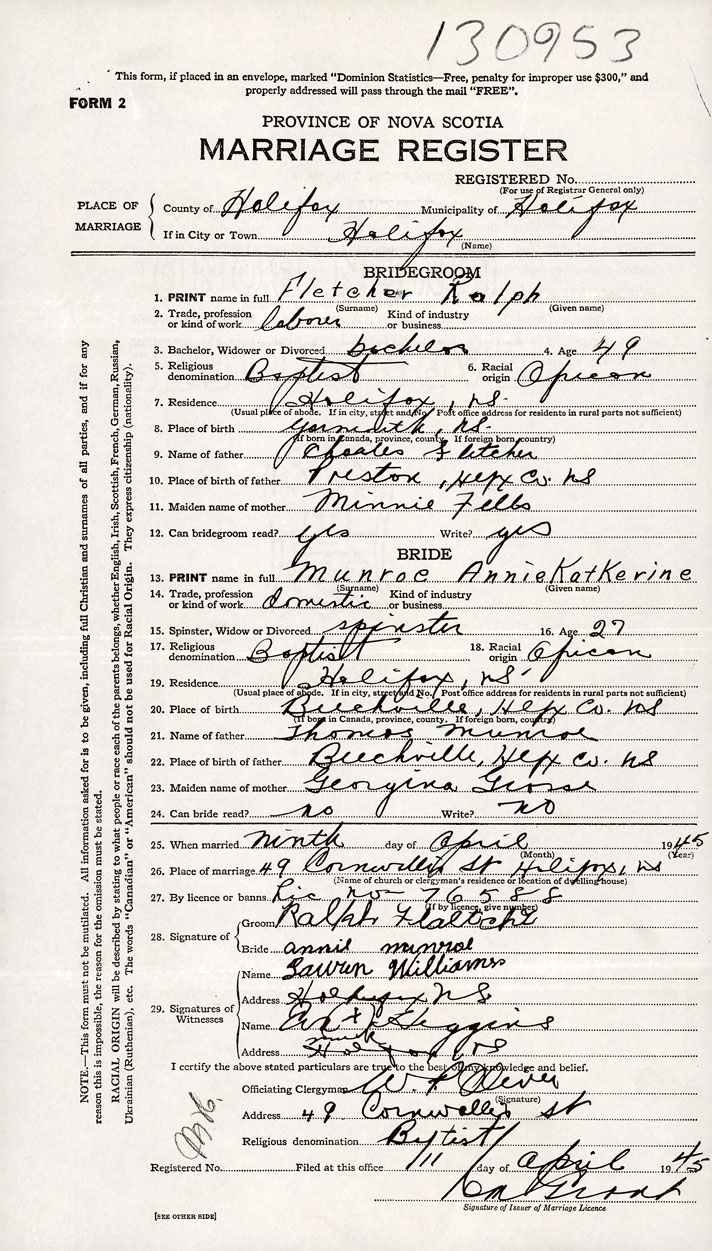 130953
This form, if placed in an envelope, marked "Dominion Statistics—Free, penalty for improper use $300," and
properly addressed will pass through the mail "FREE".
FORM 2
PROVINCE OF NOVA SCOTIA
MARRIAGE REGISTER
REGISTERED No.
(For use of Registrar General only)
PLACE OF MARRIAGE
County of Halifax Municipality of Halifax
If in City or Town Halifax
(Name)
BRIDEGROOM
1. PRINT name in full Fletcher Ralph
(Surname) (Given name)
2. Trade, profession or kind of work laborer Kind of industry or business
3. Bachelor, Widower or Divorced bachelor 4. Age 49
5. Religious denomination Baptist 6. Racial origin African
7. Residence Halifax, NS.
(Usual place of abode. If in city, street and No. Post office address for residents in rural parts not sufficient)
8. Place of birth NS.
(If born in Canada, province, county. If foreign born, country)
9. Name of father Charles Fletcher
10. Place of birth of father Preston, Hfx Co. NS
11. Maiden name of mother Minnie
12. Can bridegroom read? yes Write? yes
BRIDE
13. PRINT name in full Munroe Annie Katherine
(Surname) (Given name)
14. Trade, profession or kind of work domestic Kind of industry or business
15. Spinster, Widow or Divorced spinster 16. Age 27
17. Religious denomination Baptist 18. Racial origin African
19. Residence Halifax, NS.
(Usual place of abode. If in city, street and No. Post office address for residents in rural parts not sufficient)
20. Place of birth Beechville, Hfx Co. NS
(If born in Canada, province, county. If foreign born, country)
21. Name of father Thomas Munroe
22. Place of birth of father Beechville, Hfx Co. NS
23. Maiden name of mother Georgina
24. Can bride read? no Write? no
25. When married ninth day of April 1945
(Month) (Year)
26. Place of marriage 49 Cornwallis St Halifax, NS
(Name of church or clergyman's residence or location of dwelling house)
27. By licence or banns Lic no— 76588
(If by licence, give number)
28. Signature of
Groom Ralph
Bride annie munroe
29. Signatures of Witnesses
Name Williams
Address Halifax NS
Name
Address NS
I certify the above stated particulars are true to the best of my knowledge and belief.
Officiating Clergyman W. P. Oliver
(Signature)
Address 49 Cornwallis St
Religious denomination Baptist
Registered No. Filed at this office 11 day of April 1945
Signature of Issuer of Marriage Licence
[SEE OTHER SIDE]
NOTE.—This form must not be mutilated. All information asked for is to be given, including full Christian and surnames of all parties, and if for any
reason this is impossible, the reason for the omission must be stated.
RACIAL ORIGIN will be described by stating to what people or race each of the parents belongs, whether English, Irish, Scottish, French, German, Russian,
Ukrainian (Ruthenian), etc. The words "Canadian" or "American" should not be used for Racial Origin. They express citizenship (nationality).